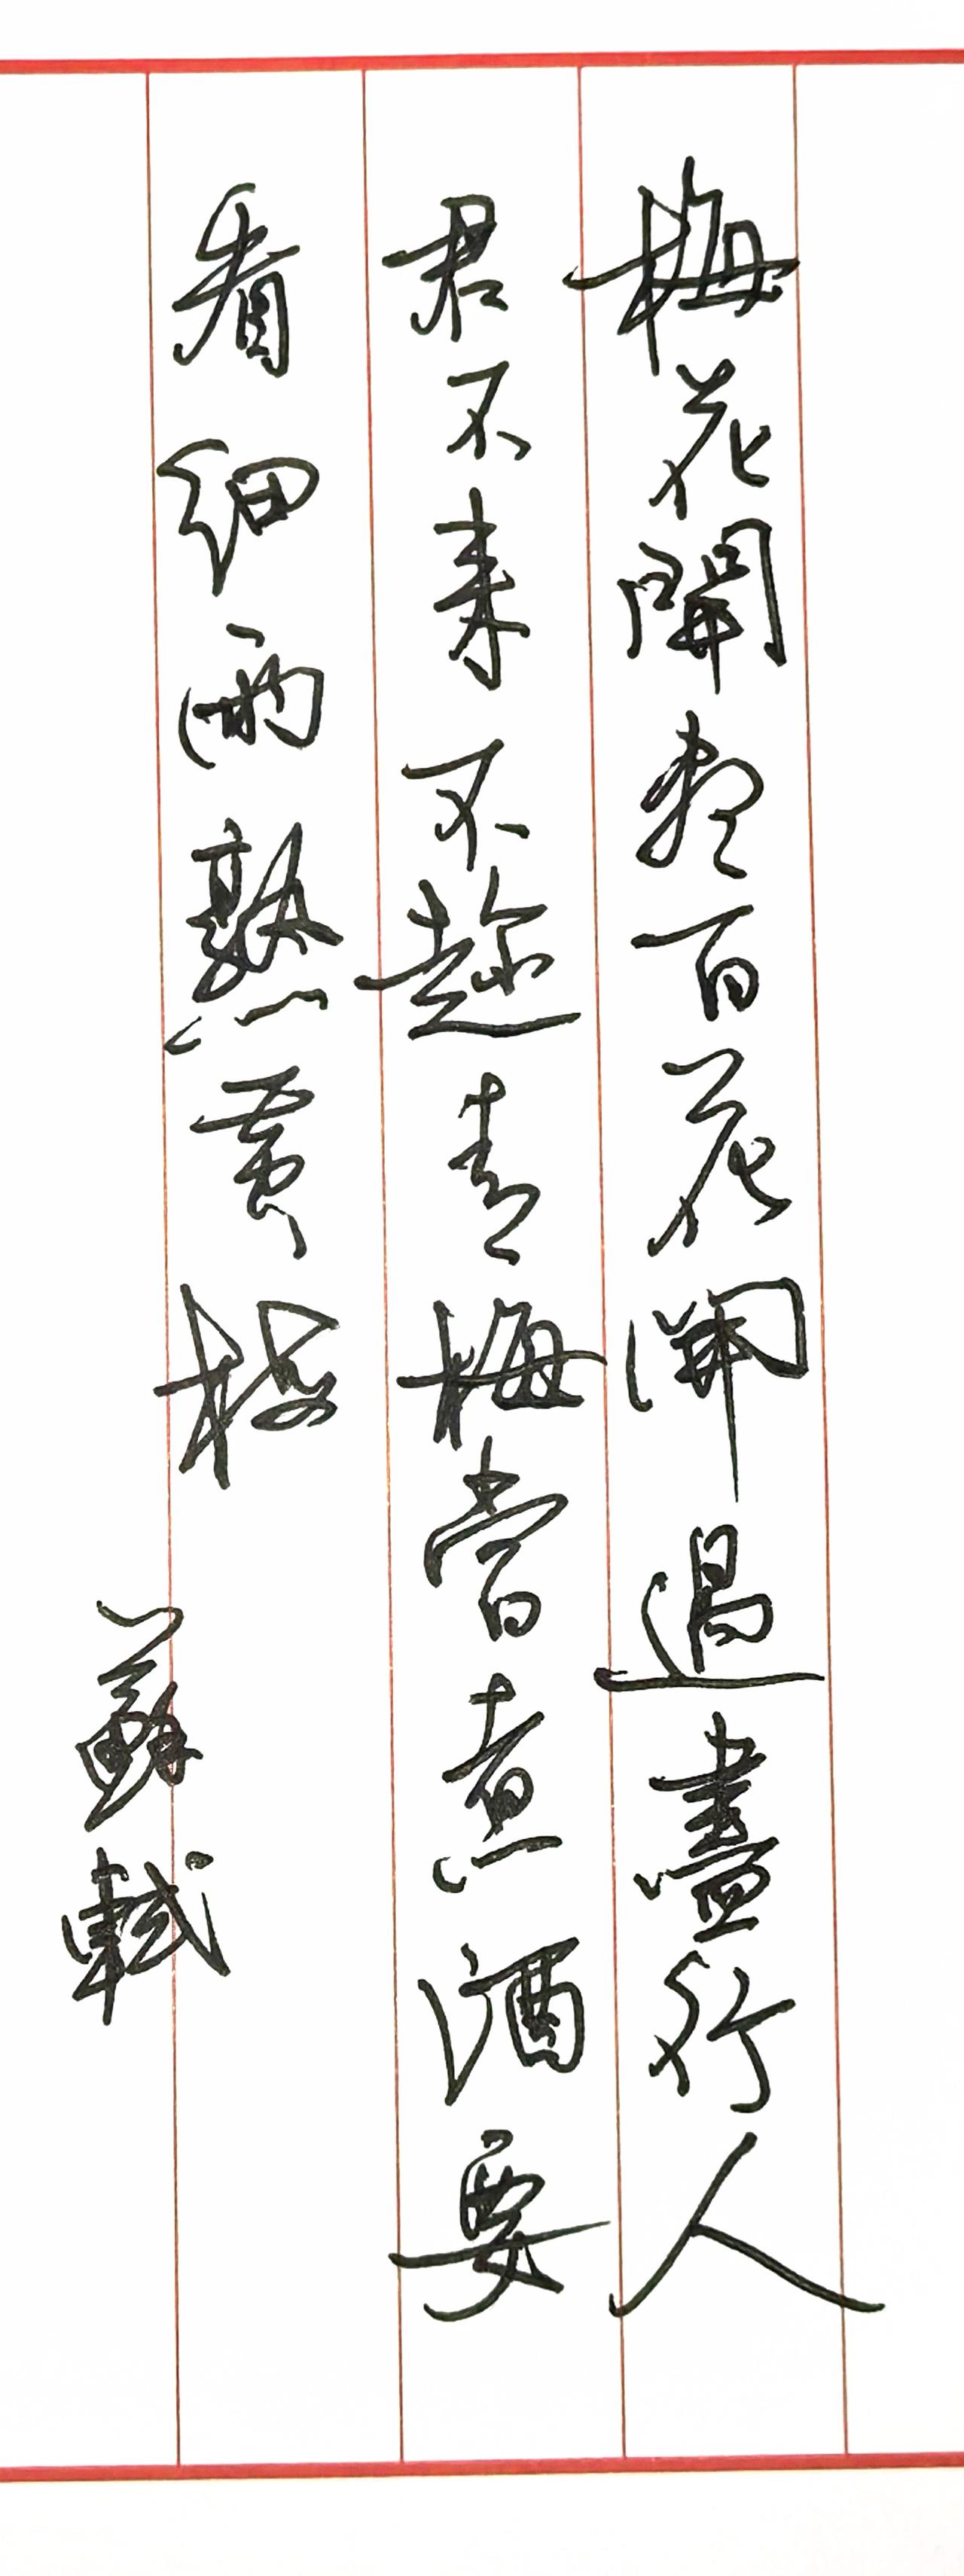 梅花開尽百花開過盡行人
君不来不趂青梅嘗煮酒要
看細雨熟黄梅
蘇軾